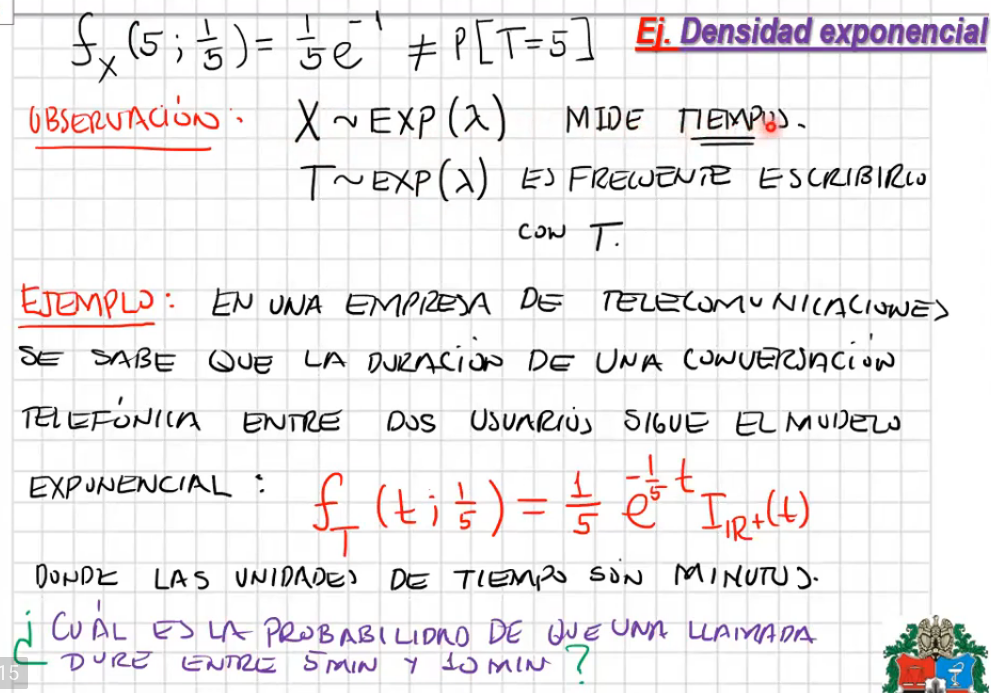 f_X (5 ; 1/5) = 1/5 e^-1 ≠ P[T=5]
Ej. Densidad exponencial
OBSERVACIÓN: X ~ EXP(λ) MIDE TIEMPOS.
T ~ EXP(λ) ES FRECUENTE ESCRIBIRLO
CON T.
EJEMPLO: EN UNA EMPRESA DE TELECOMUNICACIONES
SE SABE QUE LA DURACIÓN DE UNA CONVERSACIÓN
TELEFÓNICA ENTRE DOS USUARIOS SIGUE EL MODELO
EXPONENCIAL: f_T (t ; 1/5) = 1/5 e^(-1/5 t) I_IR+(t)
DONDE LAS UNIDADES DE TIEMPO SON MINUTOS.
¿CUÁL ES LA PROBABILIDAD DE QUE UNA LLAMADA
DURE ENTRE 5MIN Y 10 MIN?
15